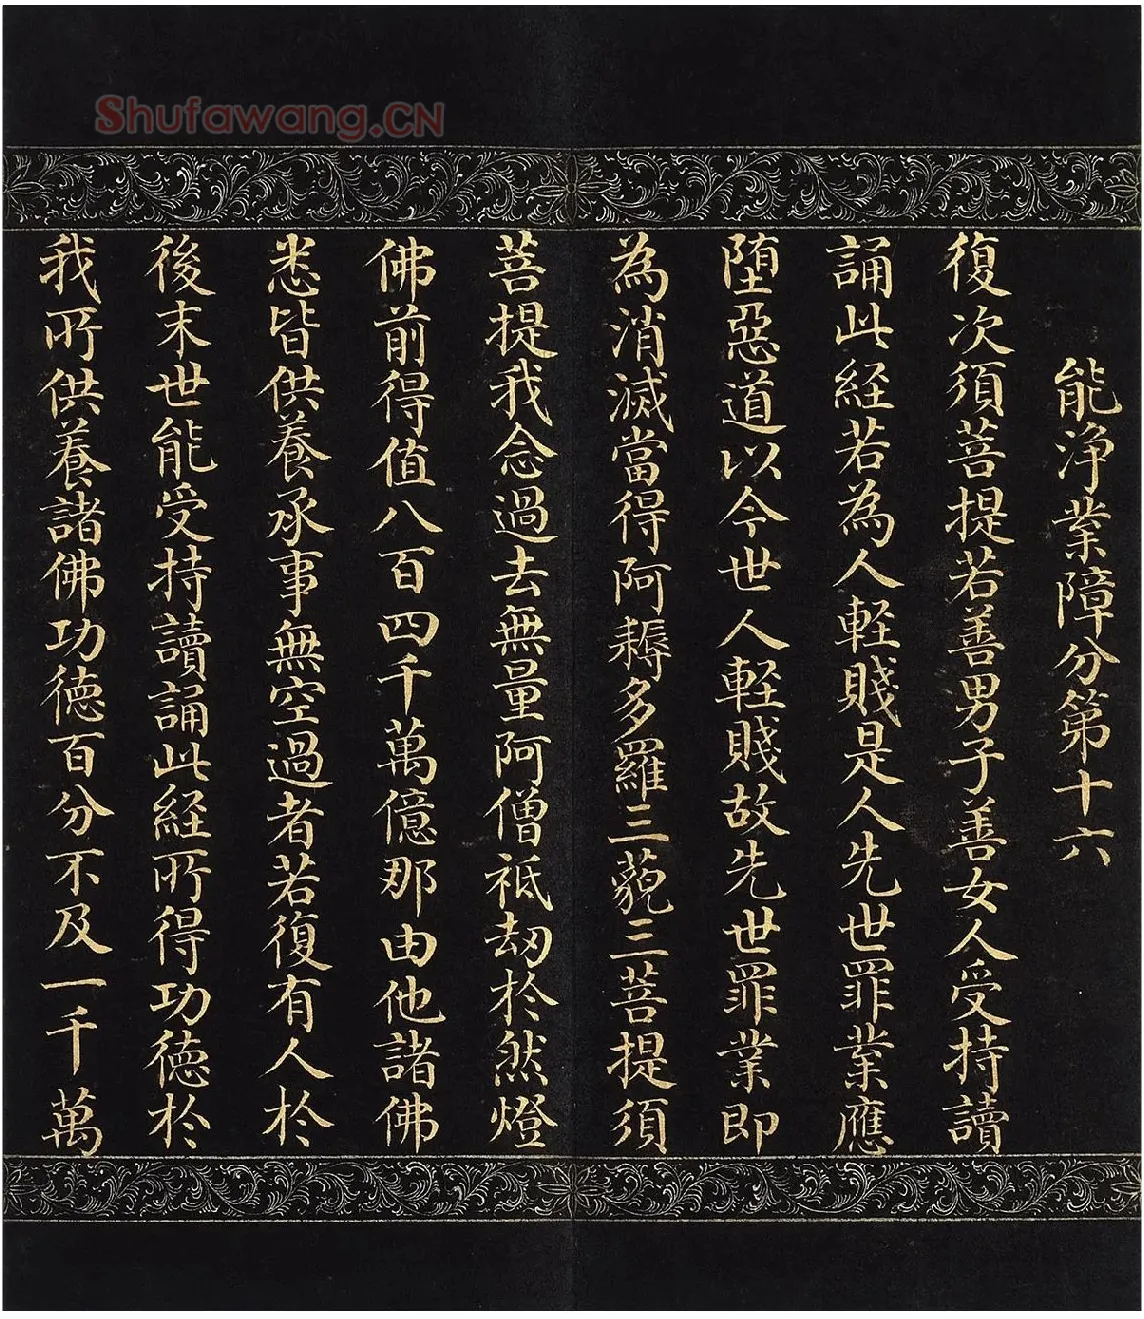 Shufawang.CN
能淨業障分第十六
復次須菩提若善男子善女人受持讀
誦此経若為人軽賤是人先世罪業應
堕惡道以今世人軽賤故先世罪業即
為消滅當得阿耨多羅三藐三菩提須
菩提我念過去無量阿僧祇劫於然燈
佛前得值八百四千萬億那由他諸佛
悉皆供養承事無空過者若復有人於
後末世能受持讀誦此経所得功徳於
我所供養諸佛功徳百分不及一千萬